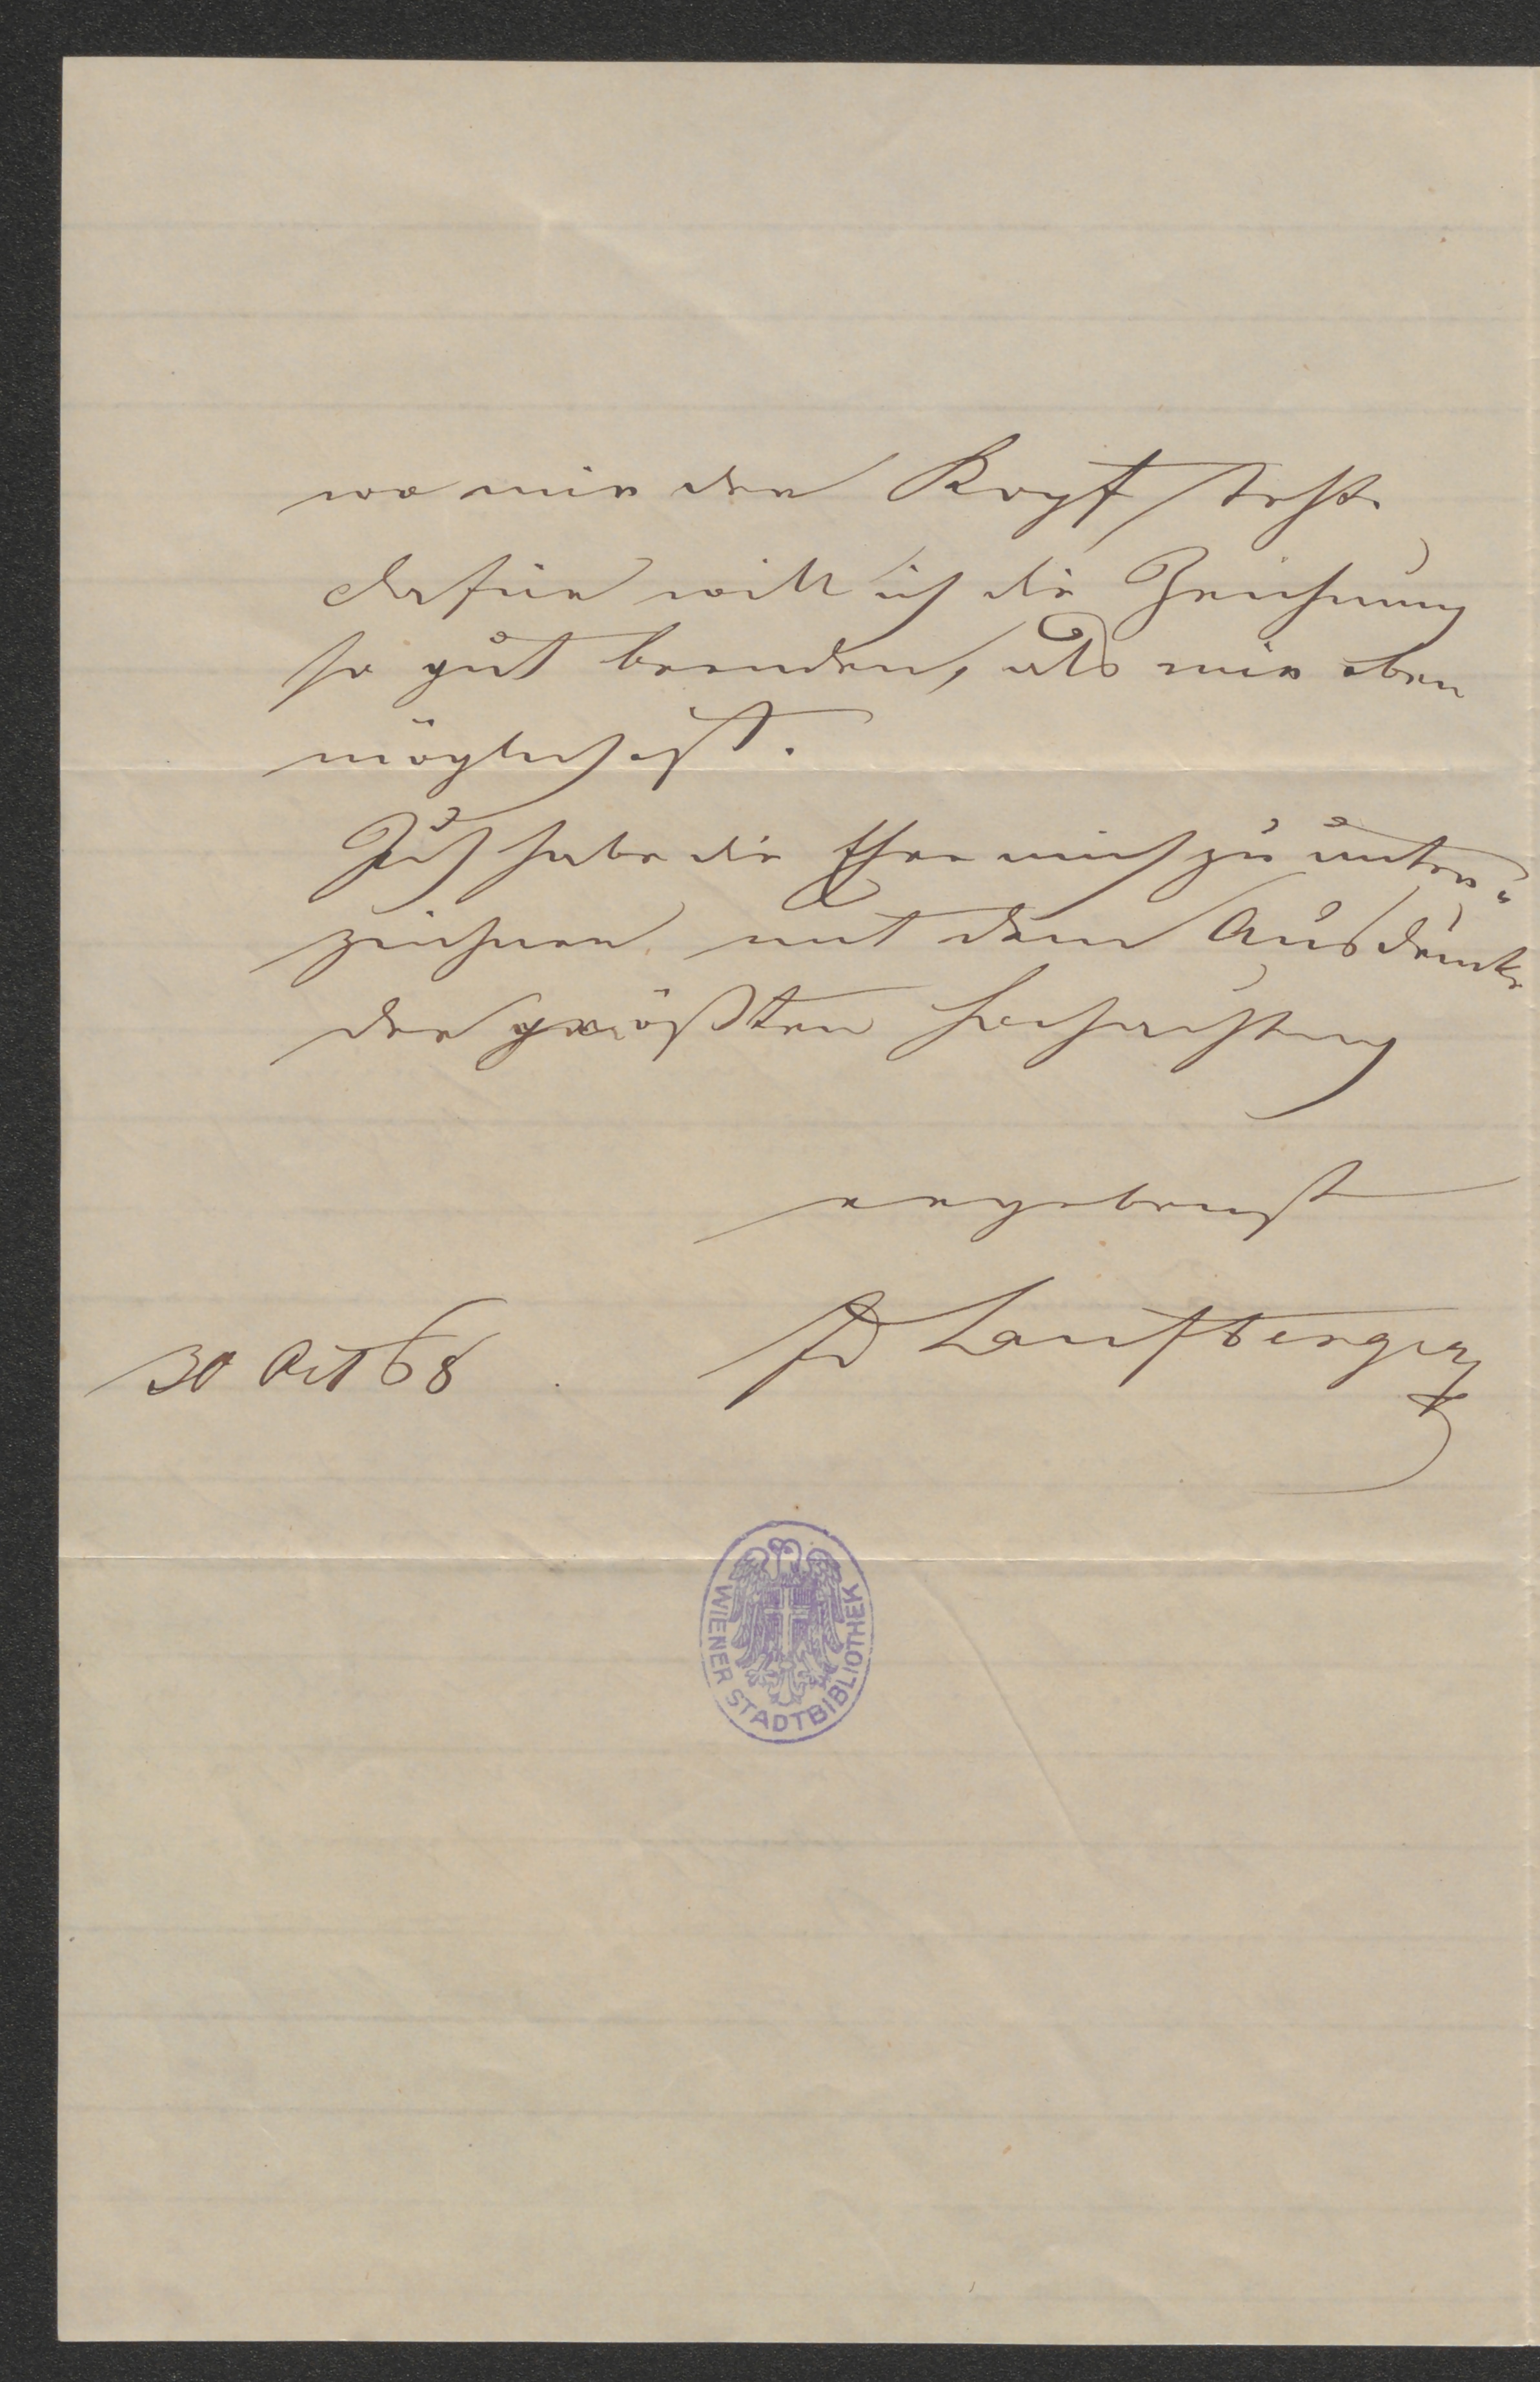 wo mir der Kopf steht.
dafür will ich die Zeichnung
so gut beenden, als mir eben
möglich ist.
Ich habe die Ehre mich zu unter=
zeichnen mit dem Ausdrucke
der größten Hochachtung
ergebenst
Fd Laufberger
30 Oct 68
WIENER STADTBIBLIOTHEK